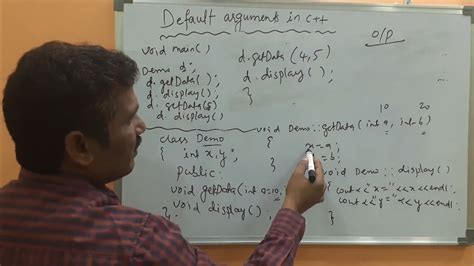 Default arguments in c++
void main()
Demo d;
d.getData();
d.display();
d.getData(5)
d.display();
d.getData(4,5)
d.display();
}
O/P
class Demo
{ int x,y;
public:
void getData(int a=10,
void display();
}
10 20
void Demo::getData(int a, int b)
{
x=a;
=b;
void Demo :: display()
{ cout<<"x="<<x<<endl;
cout<<"y="<<y<<endl;
}